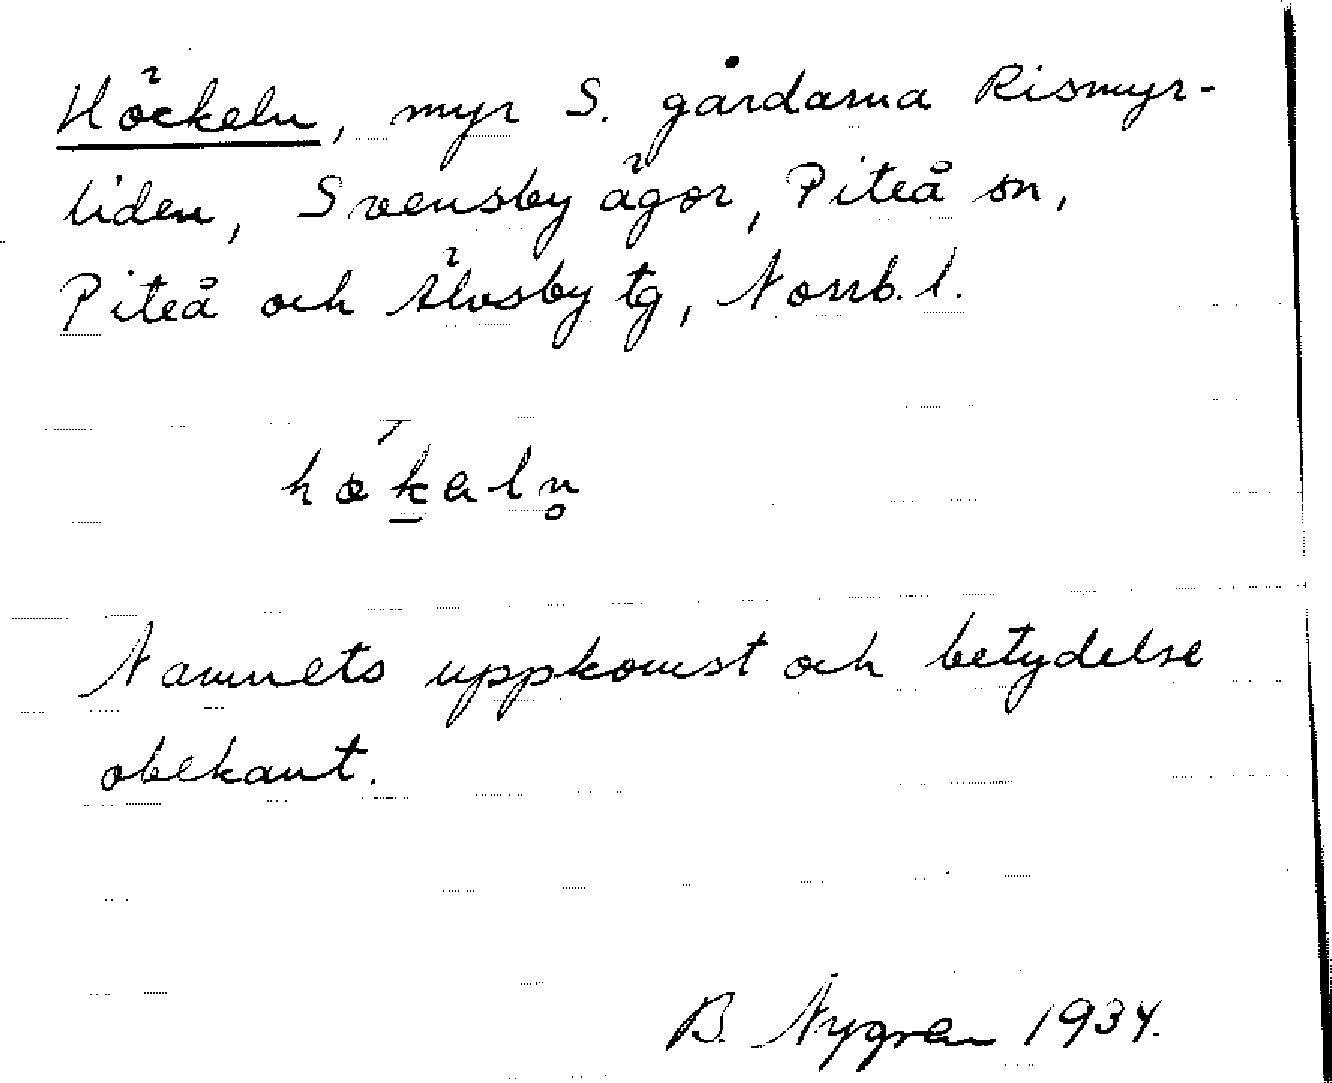 Höckeln, myr S. gårdarna Rismyr-
liden, Svensby ägor, Piteå sn,
Piteå och Älvsby tg, Norrb. l.
høḵ́aln̥
Namnets uppkomst och betydelse
obekant.
B. Nygren 1934.